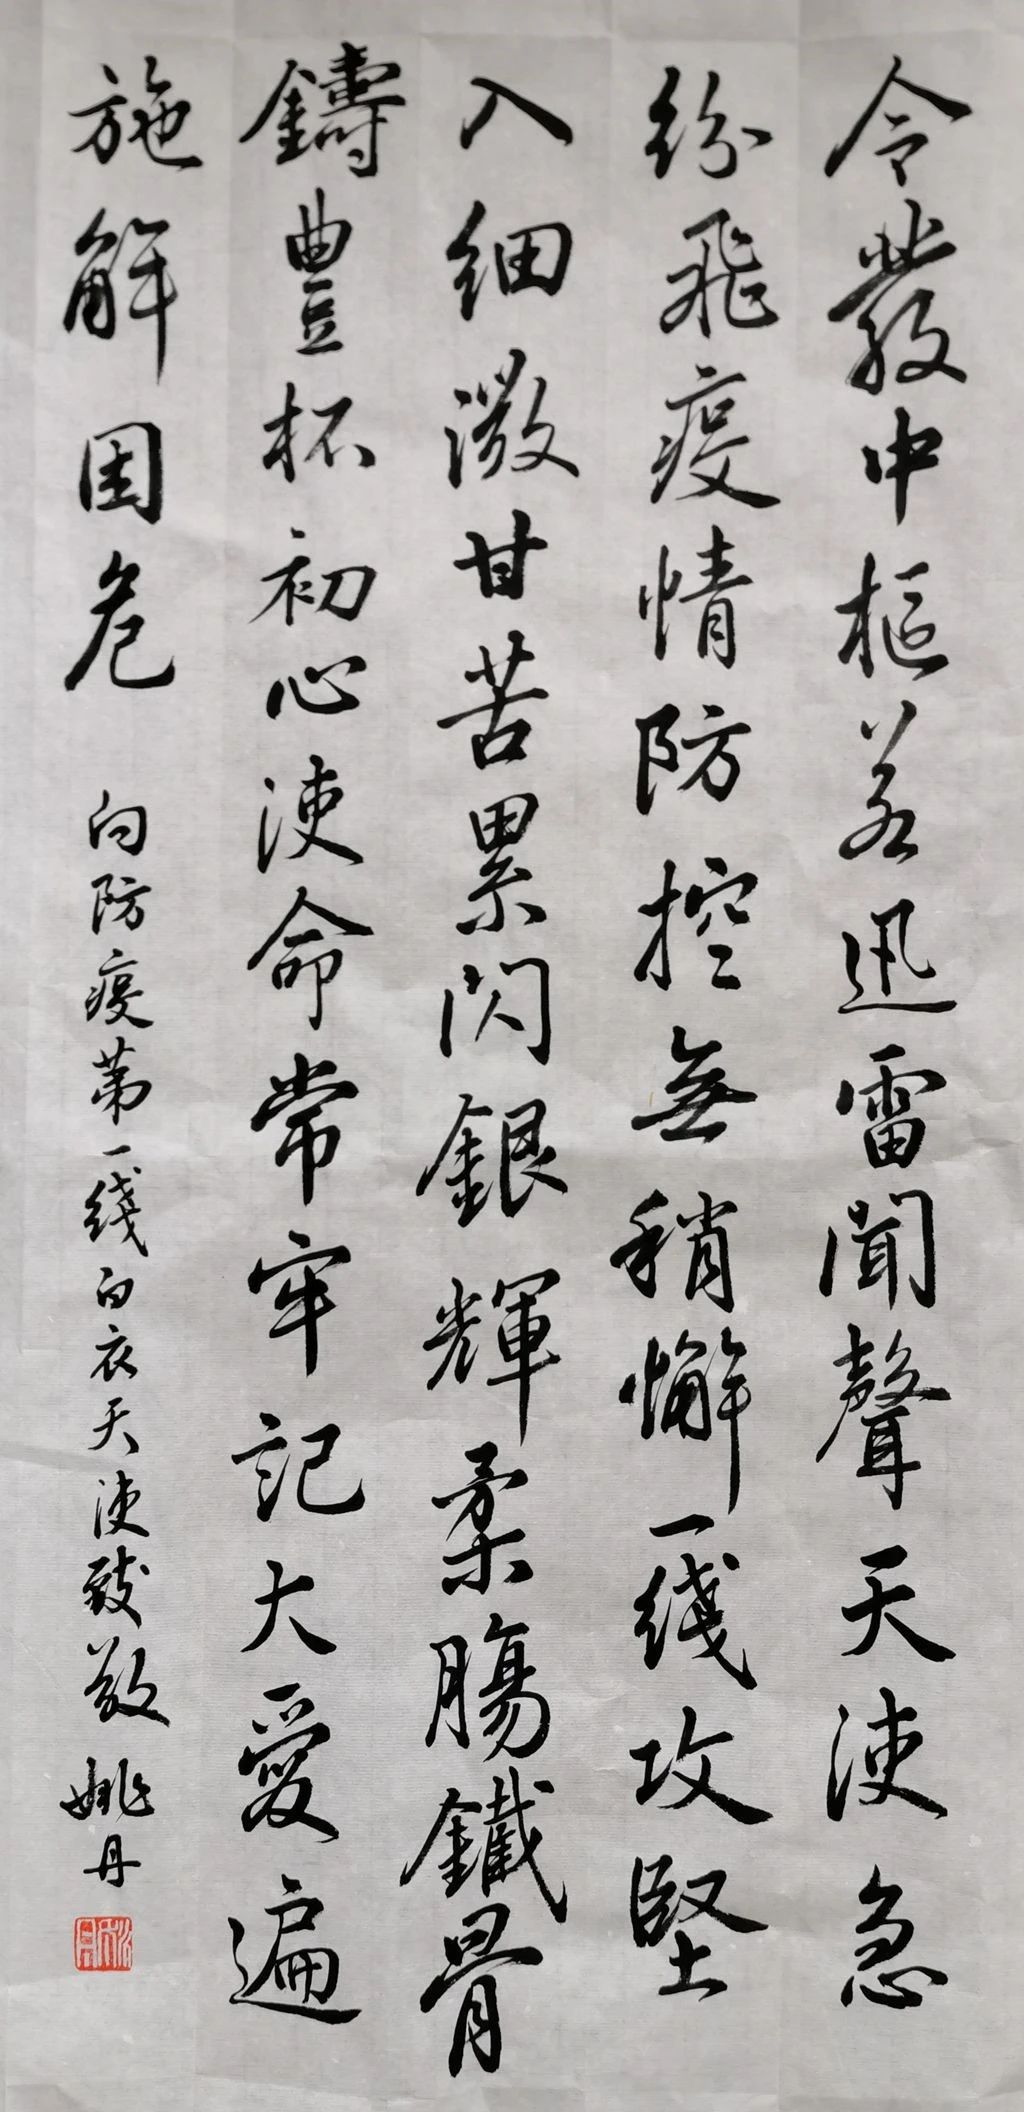 令發中樞若迅雷聞聲天使急
紛飛疫情防控無稍懈一綫攻堅
入細微甘苦累閃銀輝柔腸鐵骨
鑄豐杯初心使命常牢記大愛遍
施解困危
向防疫第一綫白衣天使致敬 姚丹